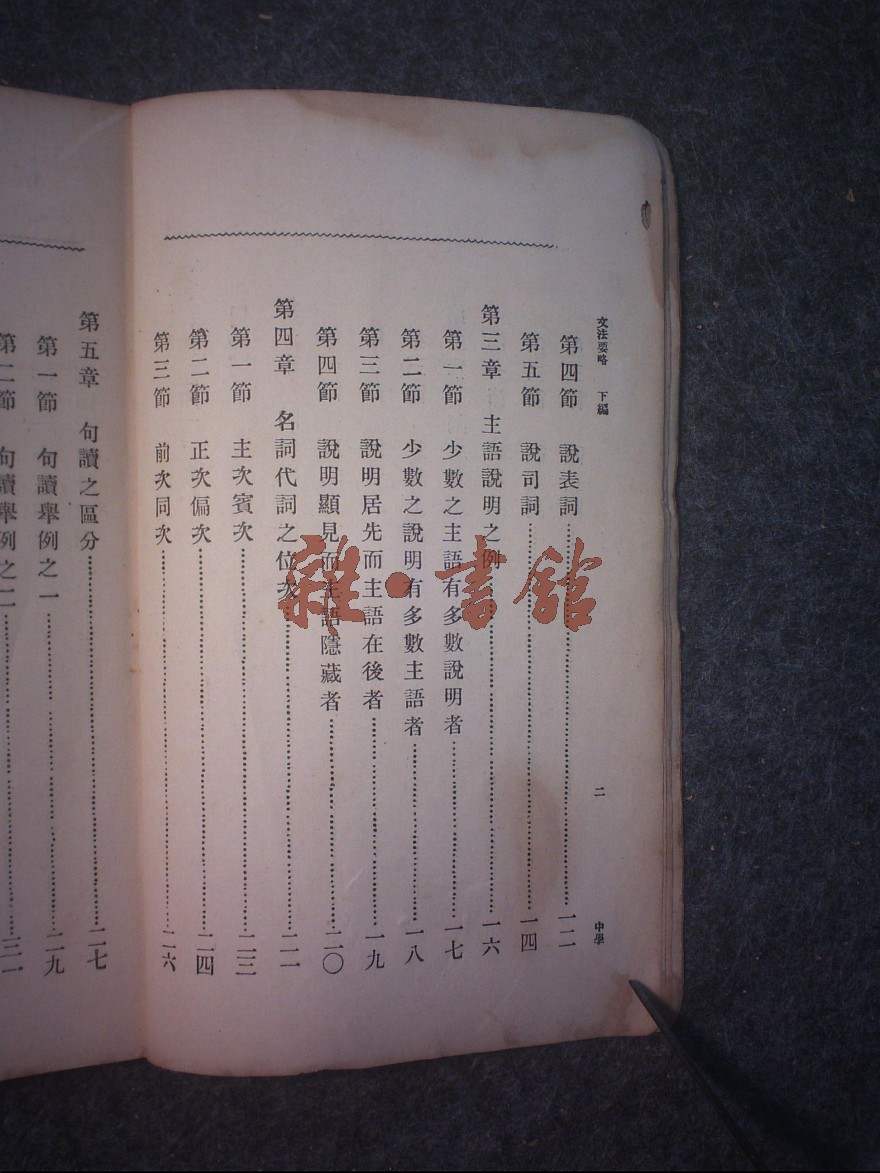 文法要略 下編 二 中學
第四節 說表詞 一二
第五節 說司詞 一四
第三章 主語說明之例 一六
第一節 少數之主語有多數說明者 一七
第二節 少數之說明有多數主語者 一八
第三節 說明居先而主語在後者 一九
第四節 說明顯見而主語隱藏者 二〇
第四章 名詞代詞之位次 二一
第一節 主次賓次 二三
第二節 正次偏次 二四
第三節 前次同次 二六
第五章 句讀之區分 二七
第一節 句讀舉例之一 二九
第二節 句讀舉例之二 三一
雜·書館